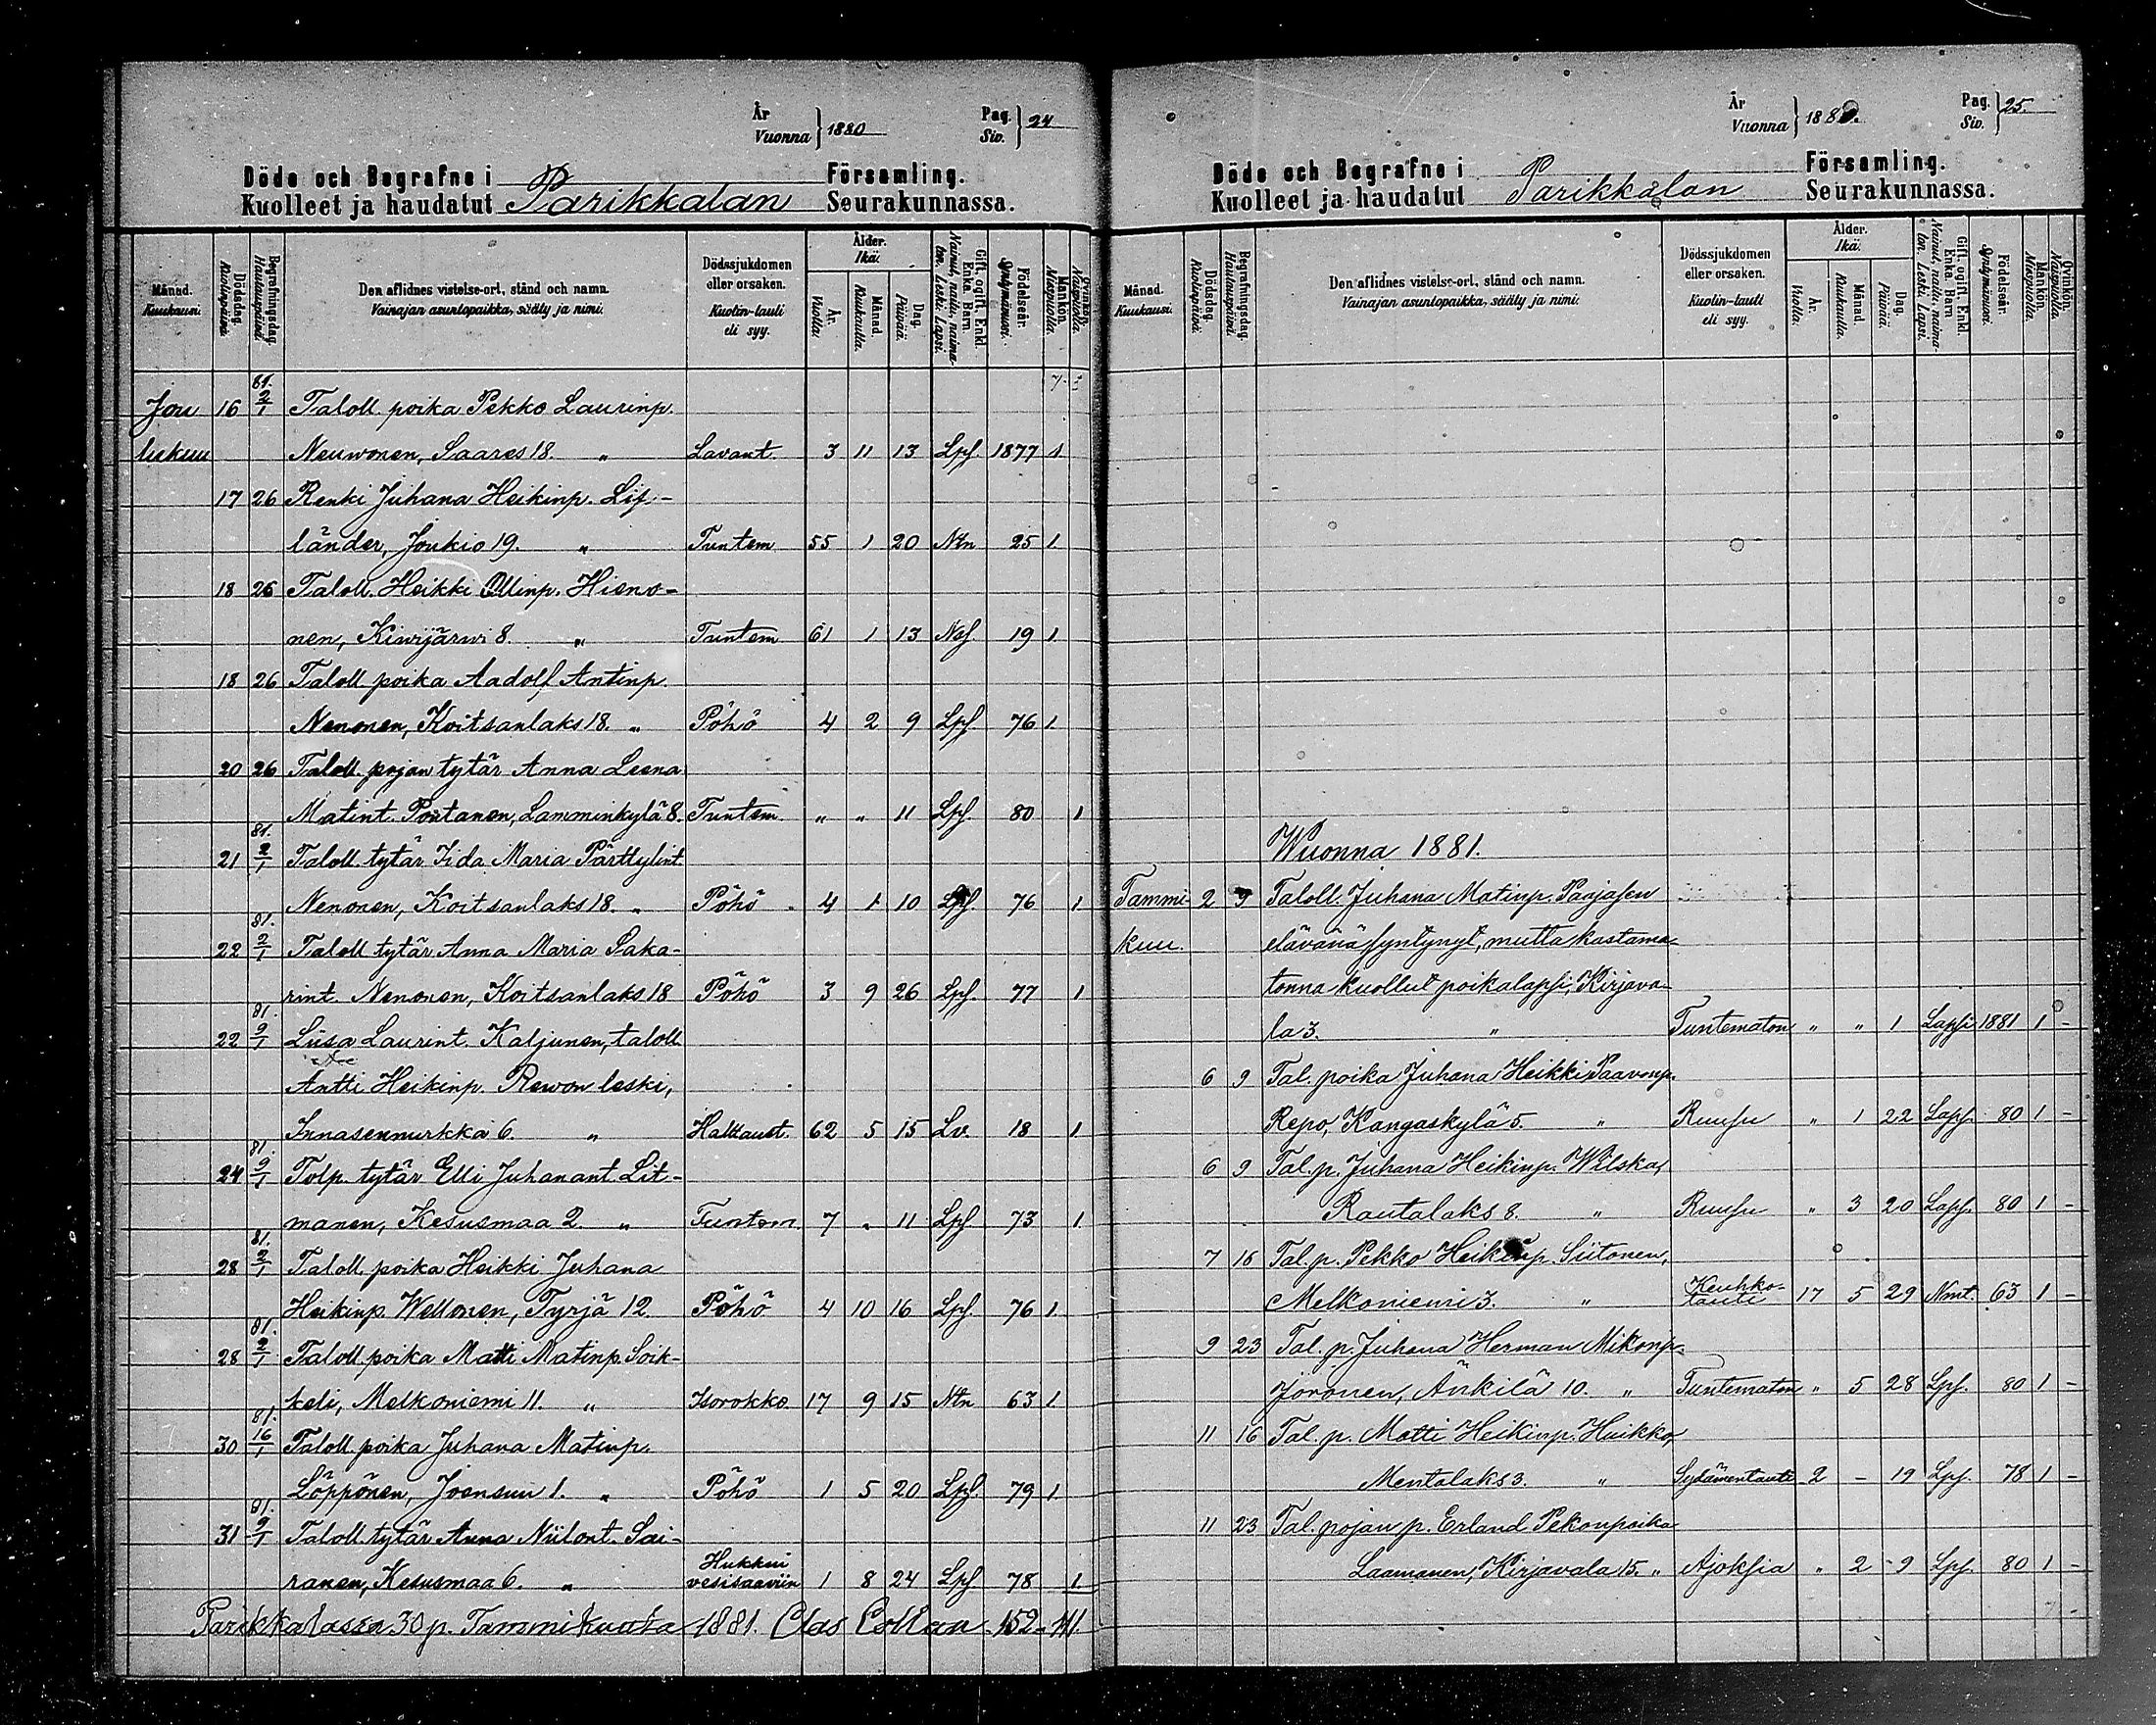 År
Vuonna } 1880 Pag. Siv. } 24
Döde och Begrafne i Församling.
Kuolleet ja haudatut Parikkalan Seurakunnassa.
Månad. Kuukausi.
Dödsdag. Kuolinpäivä.
Begrafningsdag. Hautauspäivä.
Den aflidnes vistelse-ort, stånd och namn.
Vainajan asuntopaikka, sääty ja nimi.
Dödssjukdomen eller orsaken.
Kuolin-tauti eli syy.
Ålder. Ikä.
År. Vuotta.
Månad. Kuukautta.
Dag. Päivää.
Gift, ogift, Enkl. Enka, Barn.
Nainut, naitu, naimaton, Leski, Lapsi.
Födelseår. Syntymävuosi.
Mankön. Miespuolia.
Qvinkön. Naispuolia.
81.
Jou 16 2/1 Taloll. poika Pekko Laurinp.
lukuu Neuwonen, Saares 18. " Lavant. 3 11 13 Lps. 1877 1
17 26 Renki Juhana Heikinp. Lif-
länder, Joukio 19. " Tuntem 55 1 20 Ntn 25 1.
18 26 Taloll. Heikki Ollinp. Hieno-
nen, Kiwijärwi 8. " Tuntem 61 1 13 Naf. 19 1
18 26 Taloll poika Aadolf Antinp.
Nenonen, Koitsanlaks 18. " Pöhö 4 2 9 Lps. 76 1.
20 26 Taloll. pojan tytär Anna Leena
Matint. Poutanen, Lamminkylä 8. Tuntem. " " 11 Lps. 80 1
81.
21 2/1 Taloll. tytär Iida Maria Pärttylint
Nenonen, Koitsanlaks 18. " Pöhö 4 1 10 Lps. 76 1
81.
22 2/1 Taloll tytär Anna Maria Saka-
rint. Nenonen, Koitsanlaks 18 Pöhö 3 9 26 Lps. 77 1
81.
22 9/1 Liisa Laurint. Kaljunen, taloll
Antti Heikinp. Rewon leski,
Innasennurkka 6. " Halkaust. 62 5 15 Lv. 18 1
81.
24 9/1 Tolp. tytär Elli Juhanant. Lit-
manen, Kesusmaa 2. " Tuntem. 7 " 11 Lps 73 1.
81.
28 2/1 Taloll. poika Heikki Juhana
Heikinp. Wellonen, Tyrjä 12. Pöhö 4 10 16 Lps. 76 1.
81.
28 2/1 Taloll poika Matti Matinp. Soik-
keli, Melkoniemi 11. " Isorokko. 17 9 15 Ntn 63 1
81.
30 16/1 Taloll. poika Juhana Matinp.
Löppönen, Joensuu 1. " Pöhö 1 5 20 Lps. 79 1
81.
31 9/1 Taloll. tytär Anna Niilont. Sai-
ranen, Kesusmaa 6. " Hukkui vesisaaviin 1 8 24 Lps 78 1
Parikkalassa 30 p. Tammikuuta 1881. Clas Collan. 152 - 141.
År
Vuonna } 1880. Pag. Siv. } 25.
Döde och Begrafne i Församling.
Kuolleet ja haudatut Parikkalan Seurakunnassa.
Månad. Kuukausi.
Dödsdag. Kuolinpäivä.
Begrafningsdag. Hautauspäivä.
Den aflidnes vistelse-ort, stånd och namn.
Vainajan asuntopaikka, sääty ja nimi.
Dödssjukdomen eller orsaken.
Kuolin-tauti eli syy.
Ålder. Ikä.
År. Vuotta.
Månad. Kuukautta.
Dag. Päivää.
Gift, ogift, Enkl. Enka, Barn
Nainut, naitu, naimaton, Leski, Lapsi.
Födelseår. Syntymävuosi.
Mankön. Miespuolia.
Qvinkön. Naispuolia.
Wuonna 1881.
Tammi- 2 9 Taloll. Juhana Matinp. Paajasen
kuu. elävänä syntynyt, mutta kastama-
tonna kuollut poikalapsi, Kirjava-
la 3. " Tuntematon " " 1 Lapsi 1881 1 -
6 9 Tal. poika Juhana Heikki Paavonp.
Repo, Kangaskylä 5. " Ruusu " 1 22 Laps. 80 1 -
6 9 Tal. p. Juhana Heikinp. Wilska,
Rautalaks 8. " Ruusu " 3 20 Laps. 80 1 -
7 16 Tal. p. Pekko Heikinp. Siitonen,
Melkoniemi 3. " Keuhko-tauti 17 5 29 Nmt. 63 1 -
9 23 Tal. p. Juhana Herman Mikonp.
Joronen, Änkilä 10. " Tuntematon " 5 28 Lps. 80 1 -
11 16 Tal. p. Matti Heikinp. Huikko,
Mentalaks 3. " Sydämentauti 2 - 19 Lps. 78 1 -
11 23 Tal. pojan p. Erland Pekonpoika
Laamanen, Kirjavala 15. " Ajoksia " 2 9 Lps. 80 1 -
7 -